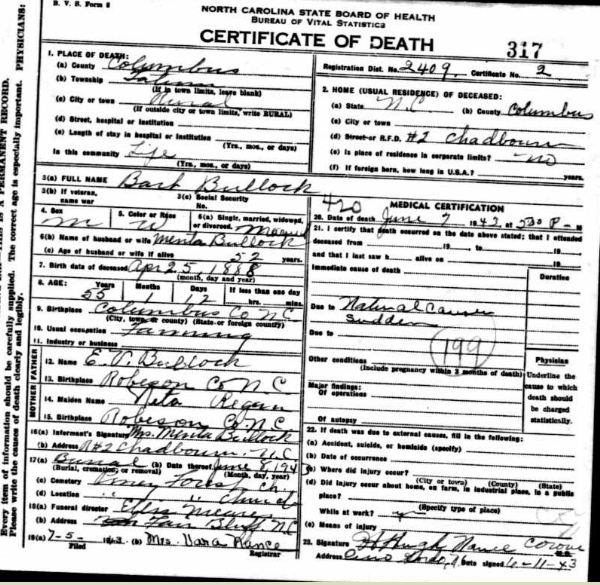 B. V. S. Form 8
NORTH CAROLINA STATE BOARD OF HEALTH
BUREAU OF VITAL STATISTICS
CERTIFICATE OF DEATH
317
Registration Dist. No. 2409 Certificate No. 2
1. PLACE OF DEATH:
(a) County Columbus
(b) Township Tatum
(If in town limits, leave blank)
(c) City or town Rural
(If outside city or town limits, write RURAL)
(d) Street, hospital or institution
(e) Length of stay in hospital or institution
(Yrs., mos., or days)
In this community Life
(Yrs., mos. or days)
2. HOME (USUAL RESIDENCE) OF DECEASED:
(a) State N.C (b) County Columbus
(c) City or town
(d) Street or R.F.D. #2 Chadbourn
(e) Is place of residence in corporate limits? no
(f) If foreign born, how long in U.S.A.? years.
3(a) FULL NAME Bart Bullock
3(b) If veteran, name war
3(c) Social Security No.
4. Sex M
5. Color or Race W
6(a) Single, married, widowed, or divorced.
6(b) Name of husband or wife Minta Bullock
(c) Age of husband or wife if alive 52 years.
7. Birth date of deceased Apr 25, 1888
(month, day and year)
8. AGE: Years 55 Months 1 Days 12 If less than one day hrs. mins.
9. Birthplace Columbus Co N.C
(City, town, or county) (State or foreign country)
10. Usual occupation Farming
11. Industry or business
FATHER
12. Name E. V. Bullock
13. Birthplace Robeson Co N C
MOTHER
14. Maiden Name Neta Regan
15. Birthplace Robeson Co N.C
16(a) Informant's Signature Mrs. Minta Bullock
(b) Address R#2 Chadbourn N.C
17(a) Burial (b) Date thereof June 8, 1943
(Burial, cremation or removal) (Month, day, year)
(c) Cemetery Forest Ch
(d) Location " " Church
18(a) Funeral director
(b) Address Fair Bluff N.C
19(a) 7-5- 1943 (b) Mrs. Vara Nance
Filed Registrar
420
MEDICAL CERTIFICATION
20. Date of death June 7 1943 at 5:30 P - M
21. I certify that death occurred on the date above stated; that I attended
deceased from 19 to 19
and that I last saw h alive on 19
Immediate cause of death
Duration
Due to Natural causes
sudden
Due to
199
Other conditions
(Include pregnancy within 3 months of death)
Major findings:
Of operations
Of autopsy
Physician
Underline the cause to which death should be charged statistically.
22. If death was due to external causes, fill in the following:
(a) Accident, suicide, or homicide (specify)
(b) Date of occurrence
(c) Where did injury occur?
(City or town) (County) (State)
(d) Did injury occur about home, on farm, in industrial place, in a public
place?
(Specify type of place)
While at work?
(e) Means of injury
23. Signature Hugh Nance
Address Cerro Gordo, N.C signed 6-11-43
Every item of information should be carefully supplied. The correct age is especially important. PHYSICIANS:
Please write the causes of death clearly and legibly.
THIS IS A PERMANENT RECORD.